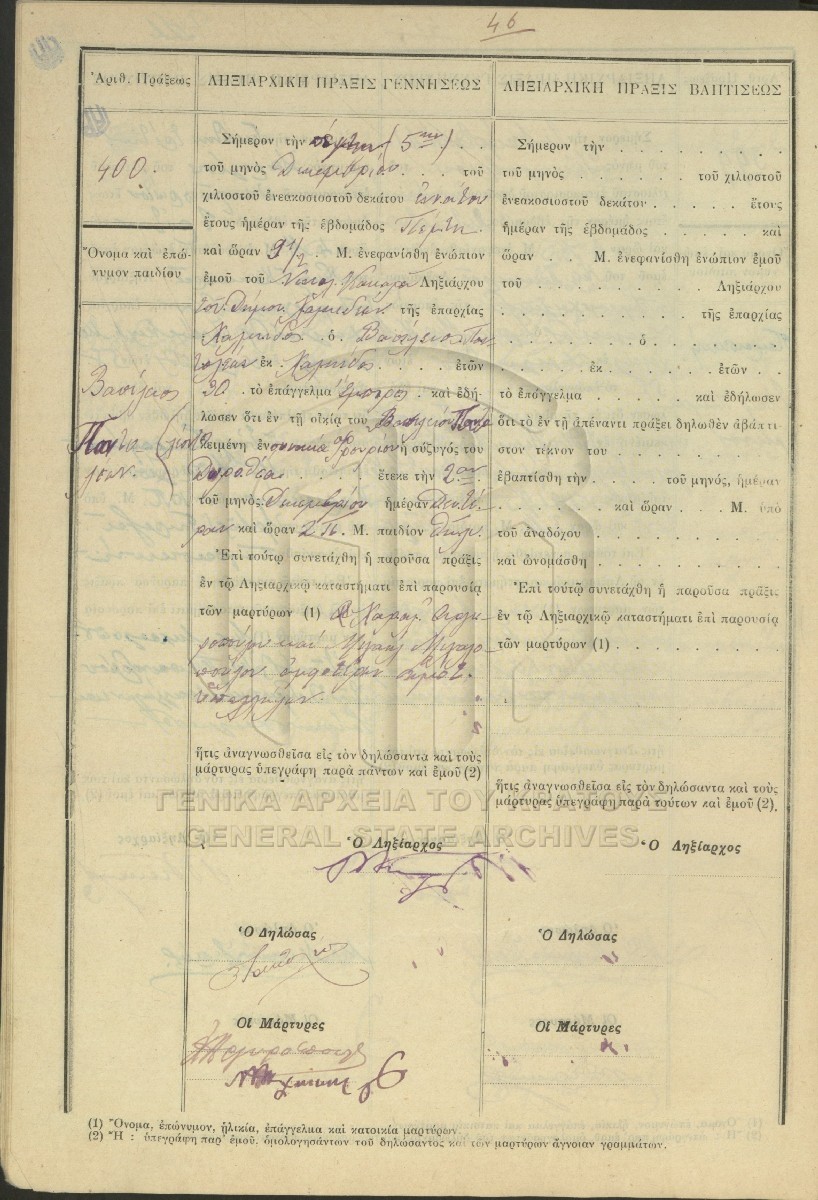 46
Ἀριθ. Πράξεως
400.
Ὄνομα καὶ ἐπώ-
νυμον παιδίου
Βασίλειος
Παντο
λέων.
ΛΗΞΙΑΡΧΙΚΗ ΠΡΑΞΙΣ ΓΕΝΝΗΣΕΩΣ
Σήμερον τὴν πέμπτην (5ην) . .
τοῦ μηνὸς Δεκεμβρίου . . . τοῦ
χιλιοστοῦ ἐνεακοσιοστοῦ δεκάτου ἐννάτου
ἔτους ἡμέραν τῆς ἑβδομάδος Πέμπτη
καὶ ὥραν 9 1/2 . Μ. ἐνεφανίσθη ἐνώπιον
ἐμοῦ τοῦ Νικολ. Ληξιάρχου
τοῦ Δήμου Χαλκιδέων τῆς ἐπαρχίας
Χαλκίδος ὁ Βασίλειος Παν
τολέων ἐκ Χαλκίδος . . . ἐτῶν
30 . τὸ ἐπάγγελμα ἔμπορος . καὶ ἐδή-
λωσεν ὅτι ἐν τῇ οἰκίᾳ του Βασιλείου
κειμένῃ ἐν συνοικίᾳ φρουρίου ἡ σύζυγός του
Δωροθέα . . . . ἔτεκε τὴν 2αν
τοῦ μηνὸς Δεκεμβρίου ἡμέραν Δευτέ
ραν καὶ ὥραν 2 Π. Μ. παιδίον θῆλυ.
Ἐπὶ τούτῳ συνετάχθη ἡ παροῦσα πρᾶξις
ἐν τῷ Ληξιαρχικῷ καταστήματι ἐπὶ παρουσίᾳ
τῶν μαρτύρων (1) Χαραλ. Ἀργυ
ροπούλου καὶ Μιχαὴλ
ἀμφοτέρων δημοτ.
ὑπαλλήλων.
ἥτις ἀναγνωσθεῖσα εἰς τὸν δηλώσαντα καὶ τοὺς
μάρτυρας ὑπεγράφη παρὰ πάντων καὶ ἐμοῦ (2)
Ὁ Ληξίαρχος
Ὁ Δηλώσας
Οἱ Μάρτυρες
ΛΗΞΙΑΡΧΙΚΗ ΠΡΑΞΙΣ ΒΑΠΤΙΣΕΩΣ
Σήμερον τὴν . . . . . . . . .
τοῦ μηνὸς . . . . . . τοῦ χιλιοστοῦ
ἐνεακοσιοστοῦ δεκάτου . . . . . ἔτους
ἡμέραν τῆς ἑβδομάδος . . . . . καὶ
ὥραν . . Μ. ἐνεφανίσθη ἐνώπιον ἐμοῦ
τοῦ . . . . . . . . . Ληξιάρχου
. . . . . . . . . τῆς ἐπαρχίας
. . . . . . . . ὁ . . . . . . .
. . . . . . ἐκ . . . . . ἐτῶν . .
τὸ ἐπάγγελμα . . . . . καὶ ἐδήλωσεν
ὅτι τὸ ἐν τῇ ἀπέναντι πράξει δηλωθὲν ἀβάπτι-
στον τέκνον του . . . . . . . . .
ἐβαπτίσθη τὴν . . . . τοῦ μηνός, ἡμέραν
. . . . . . . καὶ ὥραν . . Μ. ὑπὸ
τοῦ ἀναδόχου . . . . . . . . . .
καὶ ὠνομάσθη . . . . . . . . . .
Ἐπὶ τούτῳ συνετάχθη ἡ παροῦσα πρᾶξις
ἐν τῷ Ληξιαρχικῷ καταστήματι ἐπὶ παρουσίᾳ
τῶν μαρτύρων (1) . . . . . . . . .
ἥτις ἀναγνωσθεῖσα εἰς τὸν δηλώσαντα καὶ τοὺς
μάρτυρας ὑπεγράφη παρὰ τούτων καὶ ἐμοῦ (2).
Ὁ Ληξίαρχος
Ὁ Δηλώσας
Οἱ Μάρτυρες
ΓΕΝΙΚΑ ΑΡΧΕΙΑ ΤΟΥ ΚΡΑΤΟΥΣ
GENERAL STATE ARCHIVES
(1) Ὄνομα, ἐπώνυμον, ἡλικία, ἐπάγγελμα καὶ κατοικία μαρτύρων.
(2) Ἢ : ὑπεγράφη παρ' ἐμοῦ, ὁμολογησάντων τοῦ δηλώσαντος καὶ τῶν μαρτύρων ἄγνοιαν γραμμάτων.